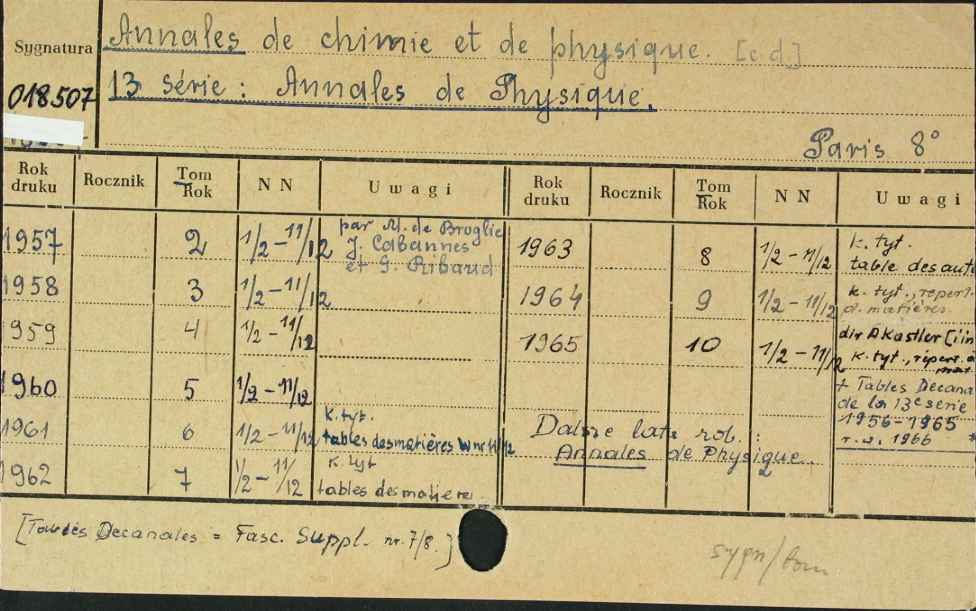 Sygnatura
Annales de chimie et de physique. [c.d.]
018507
13 série: Annales de Physique.
Paris 8°
Rok druku Rocznik Tom Rok NN Uwagi Rok druku Rocznik Tom Rok NN Uwagi
1957 2 1/2 – 11/12 par M. de Broglie
J. Cabannes
et G. Ribaud
1958 3 1/2 – 11/12
1959 4 1/2 – 11/12
1960 5 1/2 – 11/12
1961 6 1/2 – 11/12 k. tyt.
tables des matières w nr 11/12
1962 7 1/2 – 11/12 k. tyt
tables des matieres
1963 8 1/2 – 11/12 k. tyt.
table des aut
1964 9 1/2 – 11/12 k. tyt., répert.
d. matières
1965 10 1/2 – 11/12 dir A Kastler [i in
k. tyt., répert.
+ Tables Decana
de la 13e serie
1956-1965
r. w. 1966 *
Dalsze lata zob.:
Annales de Physique.
[Tables Decanales = Fasc. Suppl. nr. 7/8.]
sygn/tom